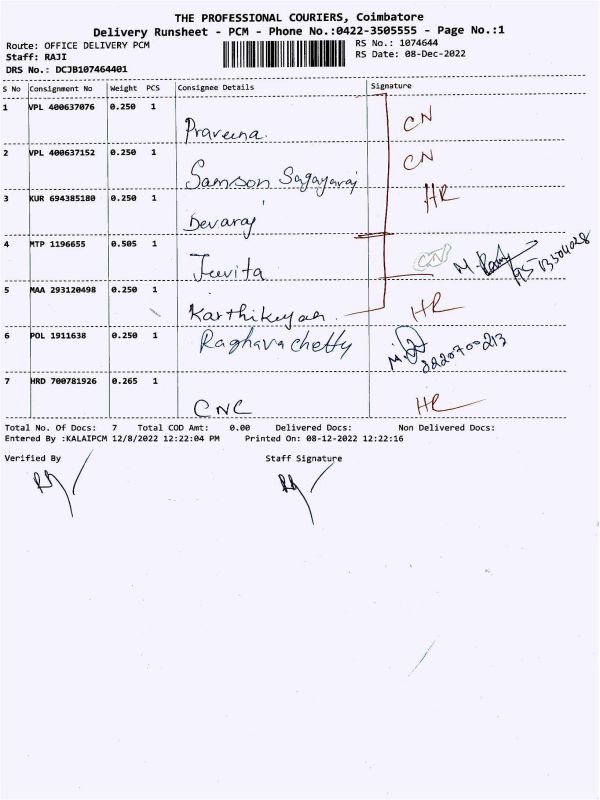 THE PROFESSIONAL COURIERS, Coimbatore
Delivery Runsheet - PCM - Phone No.:0422-3505555 - Page No.:1
Route: OFFICE DELIVERY PCM RS No.: 1074644
Staff: RAJI RS Date: 08-Dec-2022
DRS No.: DCJB107464401
S No Consignment No Weight PCS Consignee Details Signature
1 VPL 400637076 0.250 1 Praveena. CN
2 VPL 400637152 0.250 1 Samson Sagayaraj CN
3 KUR 694385180 0.250 1 Devaraj HR
4 MTP 1196655 0.505 1 Juvita CN M.
5 MAA 293120498 0.250 1 Karthikeyan. HR
6 POL 1911638 0.250 1 Raghavachetty 8220700213
7 HRD 700781926 0.265 1 CNC HR
Total No. Of Docs: 7 Total COD Amt: 0.00 Delivered Docs: Non Delivered Docs:
Entered By :KALAIPCM 12/8/2022 12:22:04 PM Printed On: 08-12-2022 12:22:16
Verified By Staff Signature